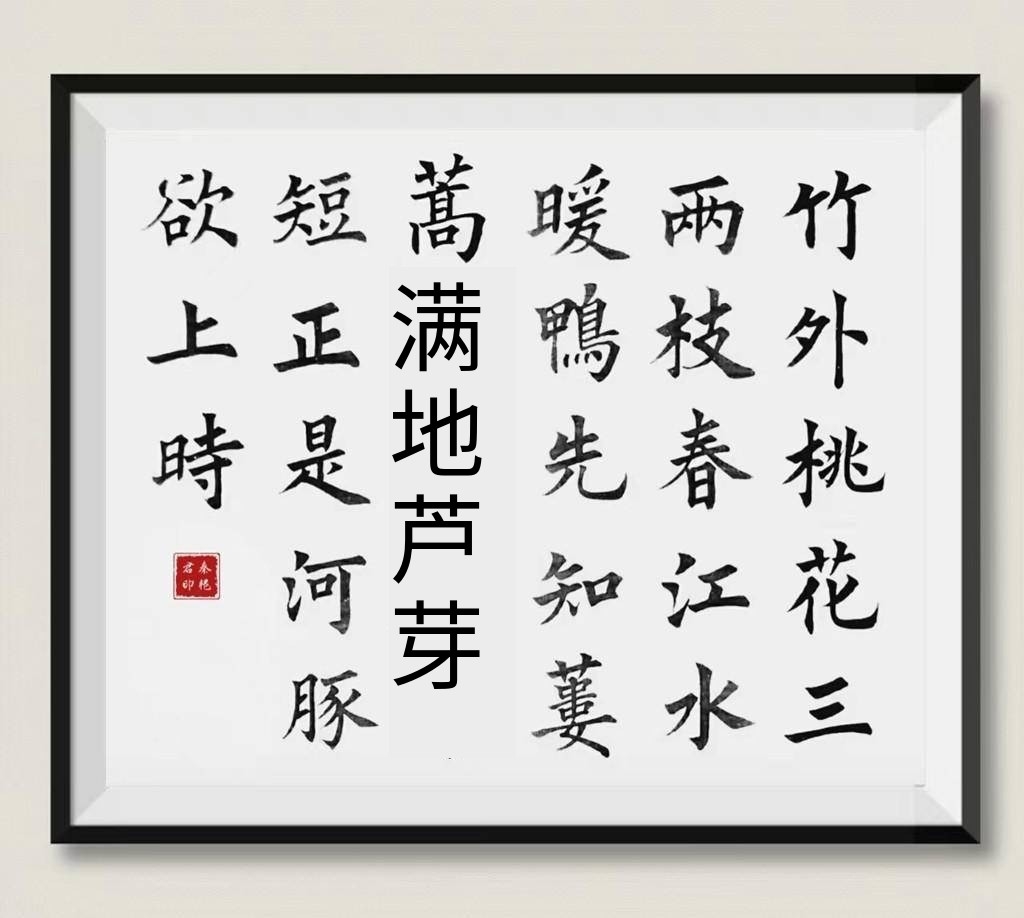 竹外桃花三
两枝春江水
暖鴨先知蔞
蒿满地芦芽
短正是河豚
欲上時